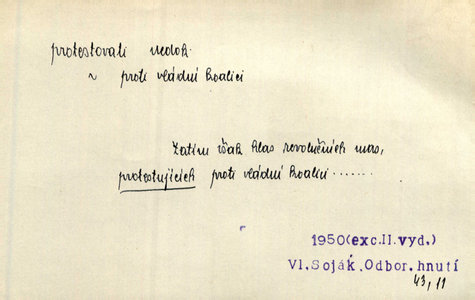 protestovati nedok.
~ proti vládní koalici
Zatím však hlas revolučních mas,
protestujících proti vládní koalici.......
1950(exc.II.vyd.)
Vl.Soják.Odbor.hnutí
43,11